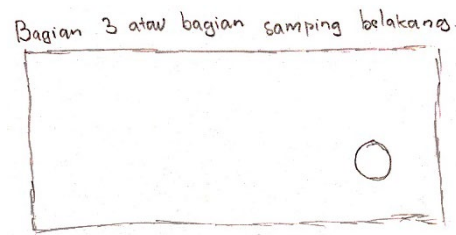 Bagian 3 atau bagian samping belakang.